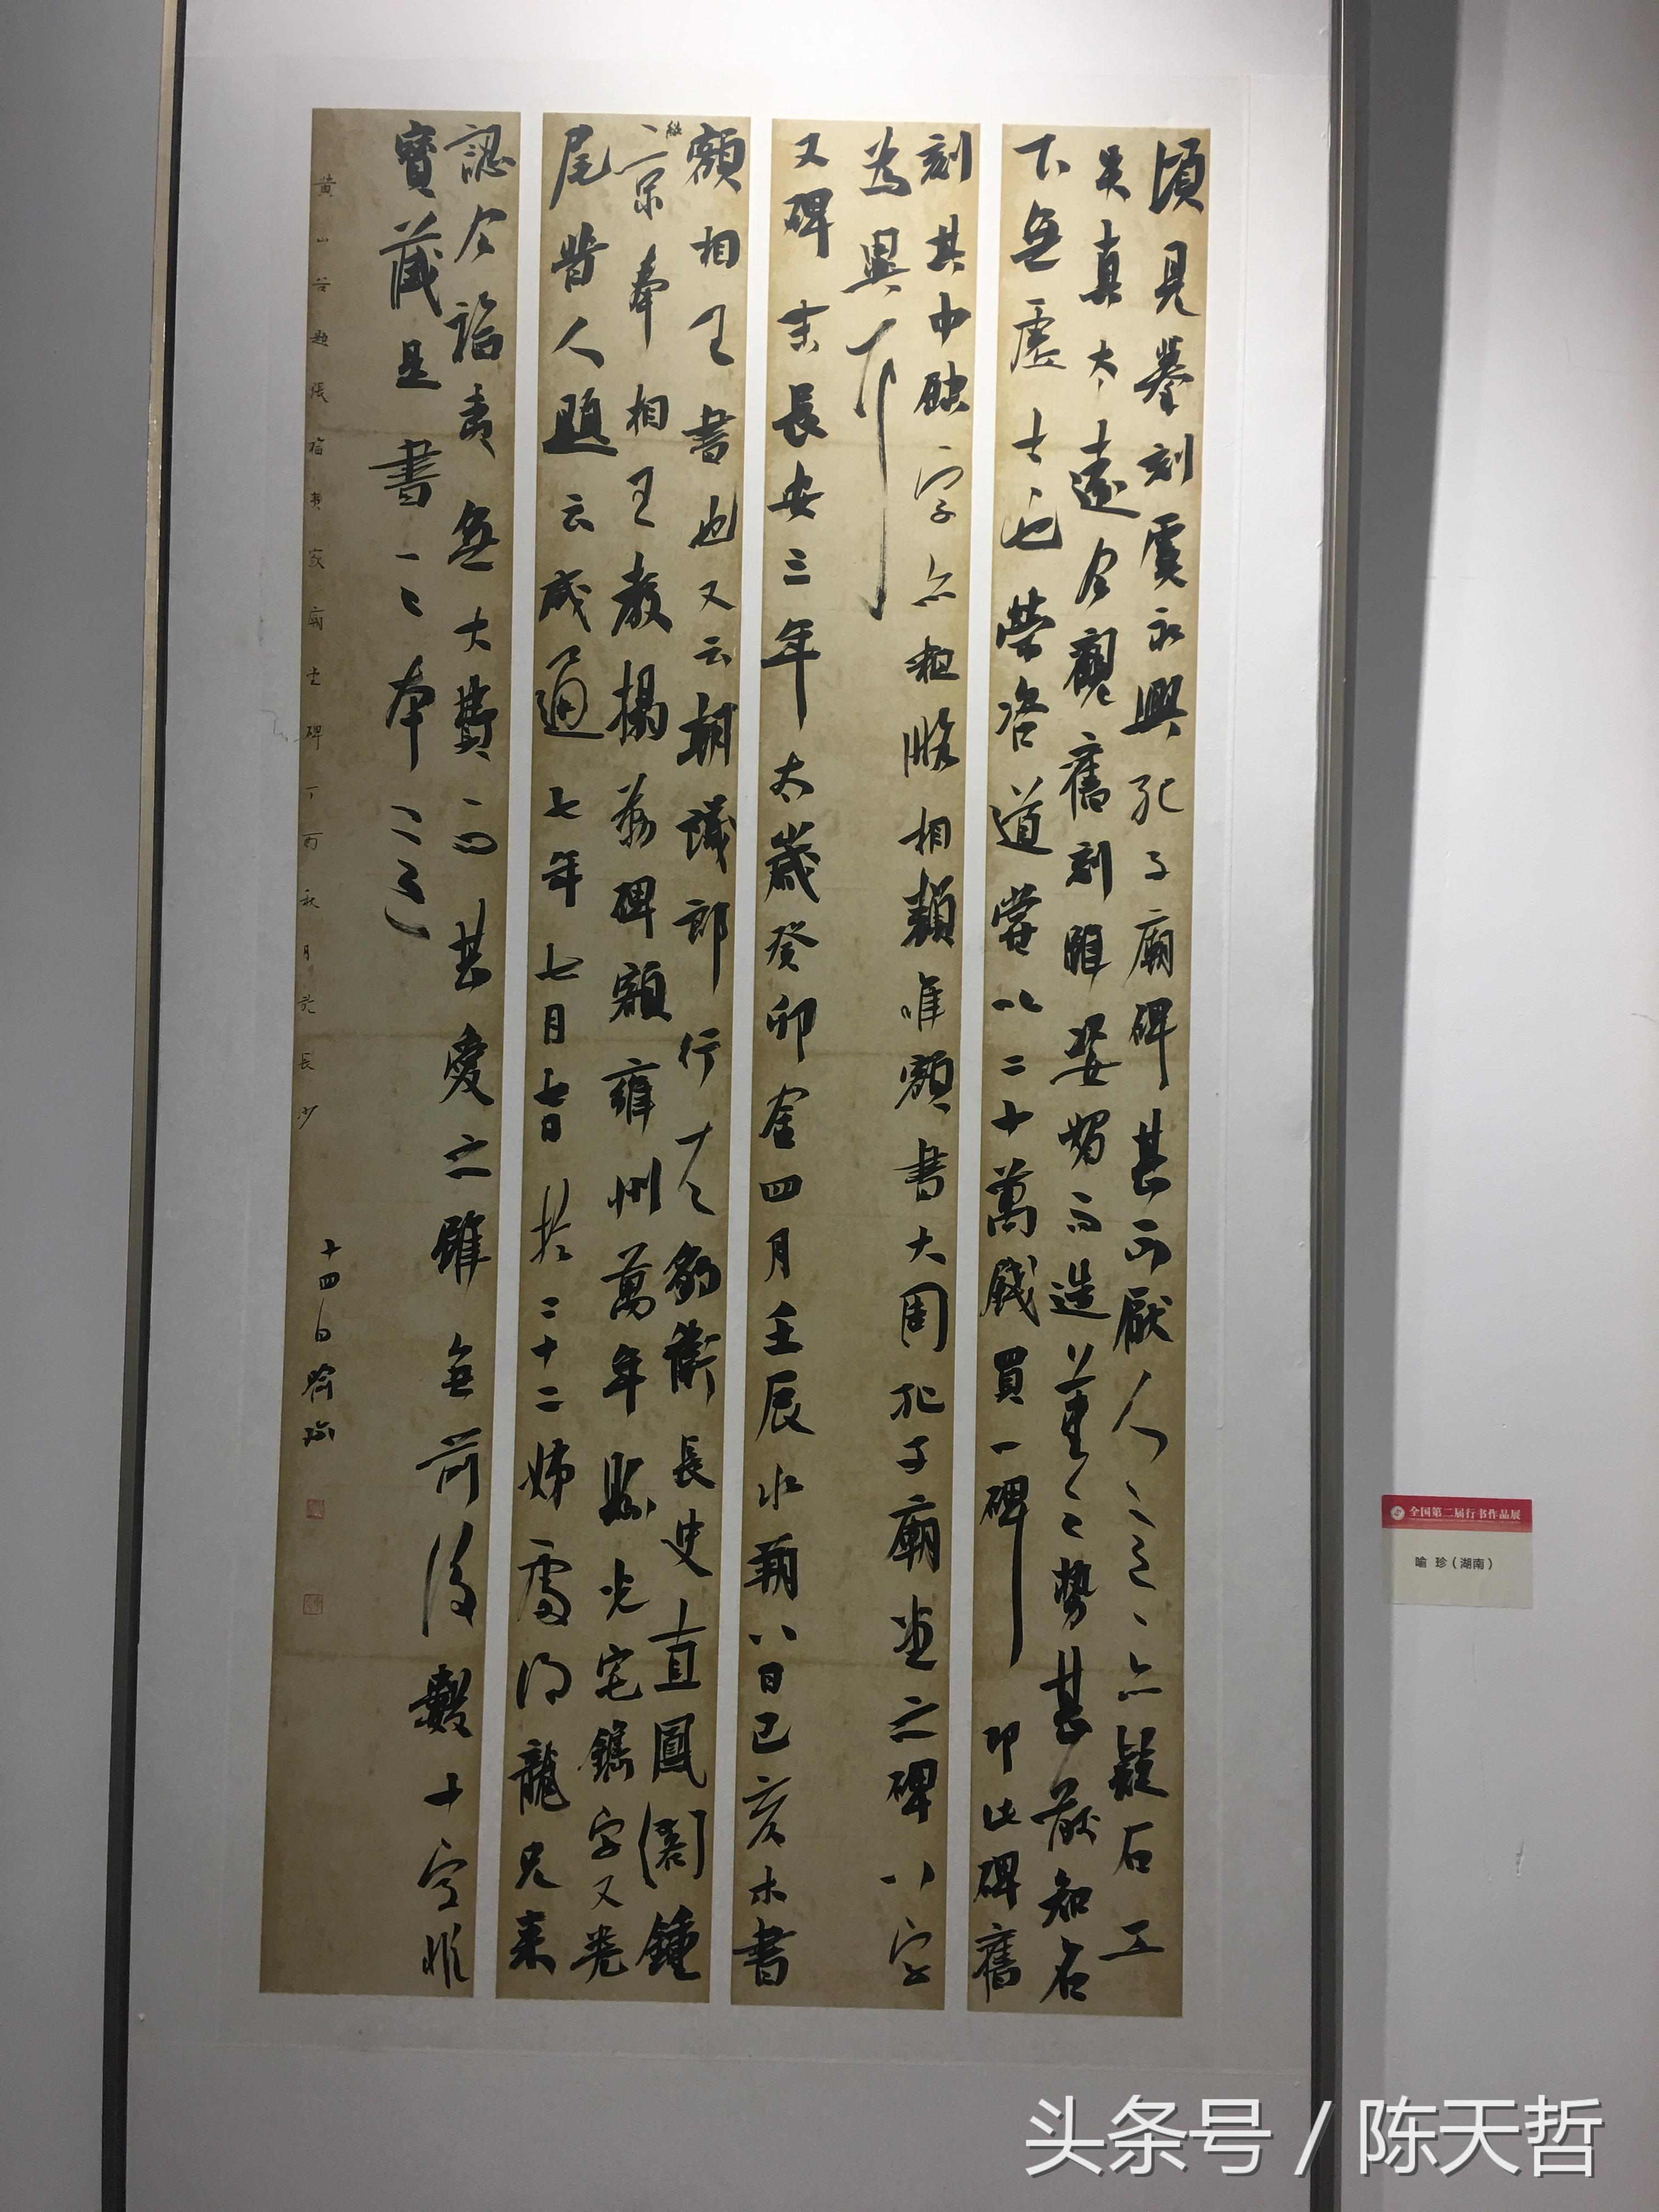 頃見摹刻虞永興孔子廟碑甚不厭人意亦疑石工
失真太遠今觀舊刻雖姿媚而造筆之勢甚遒知名
下無虛士也榮咨道嘗以二十萬錢買一碑即此碑舊
刻其中缺字亦粗勝相類唯額書大周孔子廟堂之碑八字
為異耳
又碑末長安三年太歲癸卯金四月壬辰水朔八日己亥木書
額相王書也又云朝議郎行左豹衛長史直鳳閣鍾
紹京奉相王教搨勒碑額雍州萬年縣光宅鐫字又卷
尾昔人題云咸通七年七月七日於三十二姊處得龍兄來
認令諭夷無大費而甚愛之雖無前後數十字唯
寶藏是書之本
黄山谷題張福夷家廟堂碑丁酉秋月於長沙
十四白喻珍
全国第二届行书作品展
喻 珍（湖南）
头条号 / 陈天哲